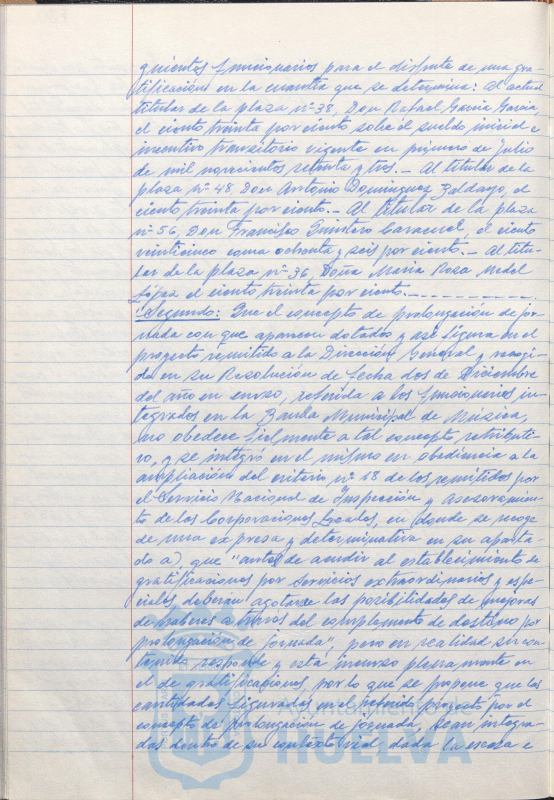 guientes funcionarios para el disfrute de una gra-
tificación en la cuantía que se determina: Al actual
titular de la plaza nº 38, Don Rafael García García,
el ciento treinta por ciento sobre el sueldo inicial e
incentivo transitorio vigente en primero de Julio
de mil novecientos setenta y tres.- Al titular de la
plaza nº 48 Don Antonio Domínguez Galdayo, el
ciento treinta por ciento.- Al titular de la plaza
nº 56, Don Francisco Caracuel, el ciento
veinticinco coma ochenta y seis por ciento.- Al titu-
lar de la plaza nº 36, Doña María Rosa Medel
López el ciento treinta por ciento.-----------
"Segundo: Que el concepto de prolongación de jor-
nada con que aparecen dotados y así figura en el
proyecto remitido a la Dirección General y recogi-
do en su Resolución de fecha dos de Diciembre
del año en curso, referida a los funcionarios in-
tegrados en la Banda Municipal de Música,
no obedece fielmente a tal concepto retributi-
vo, y se integró en el mismo en obediencia a la
ampliación del criterio nº 18 de los remitidos por
el Servicio Nacional de Inspección y Asesoramien-
to de las Corporaciones Locales, en donde se recoge
de una expresa y determinativa en su aparta-
do a), que "antes de acudir al establecimiento de
gratificaciones por servicios extraordinarios y espe-
ciales deberán agotarse las posibilidades de mejoras
de haberes a través del complemento de destino por
prolongación de jornada", pero en realidad su con-
tenido responde y está incurso plenamente en
el de gratificaciones, por lo que se propone que las
cantidades figuradas en el referido proyecto por el
concepto de prolongación de jornada, sean integra-
das dentro de su contexto real dada la escasa e
HUELVA